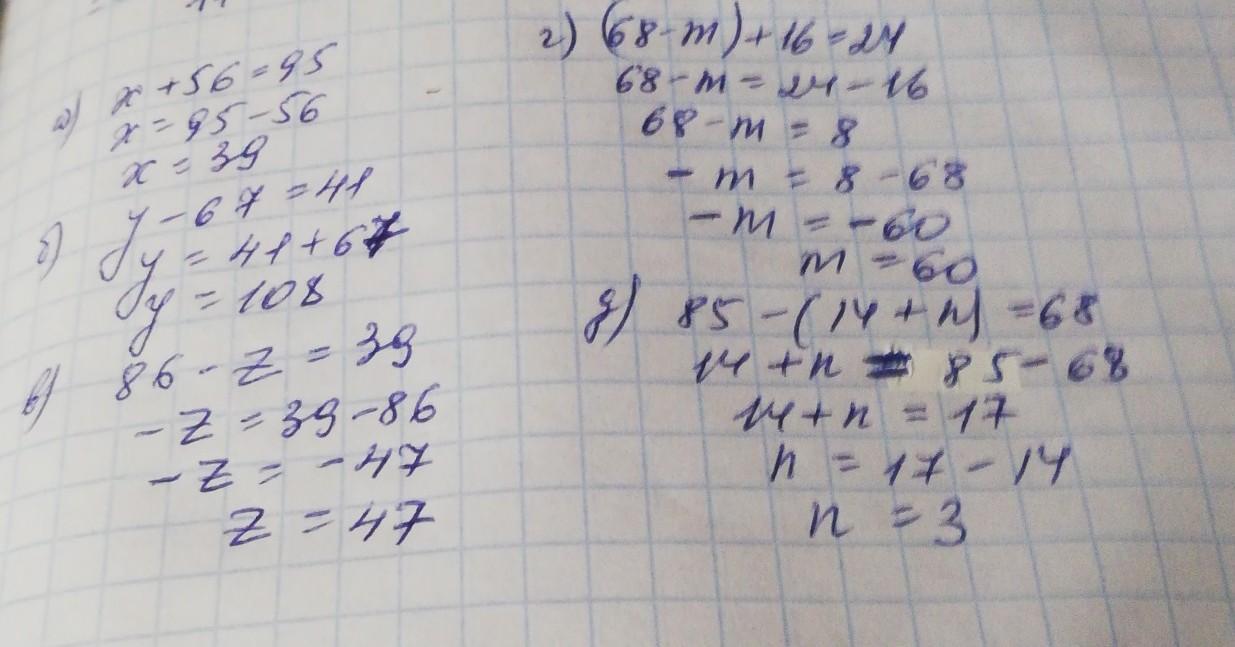 а) x + 56 = 95
x = 95 - 56
x = 39
б) y - 67 = 41
y = 41 + 67
y = 108
в) 86 - z = 39
- z = 39 - 86
- z = - 47
z = 47
г) (68 - m) + 16 = 24
68 - m = 24 - 16
68 - m = 8
- m = 8 - 68
- m = - 60
m = 60
д) 85 - (14 + n) = 68
14 + n = 85 - 68
14 + n = 17
n = 17 - 14
n = 3